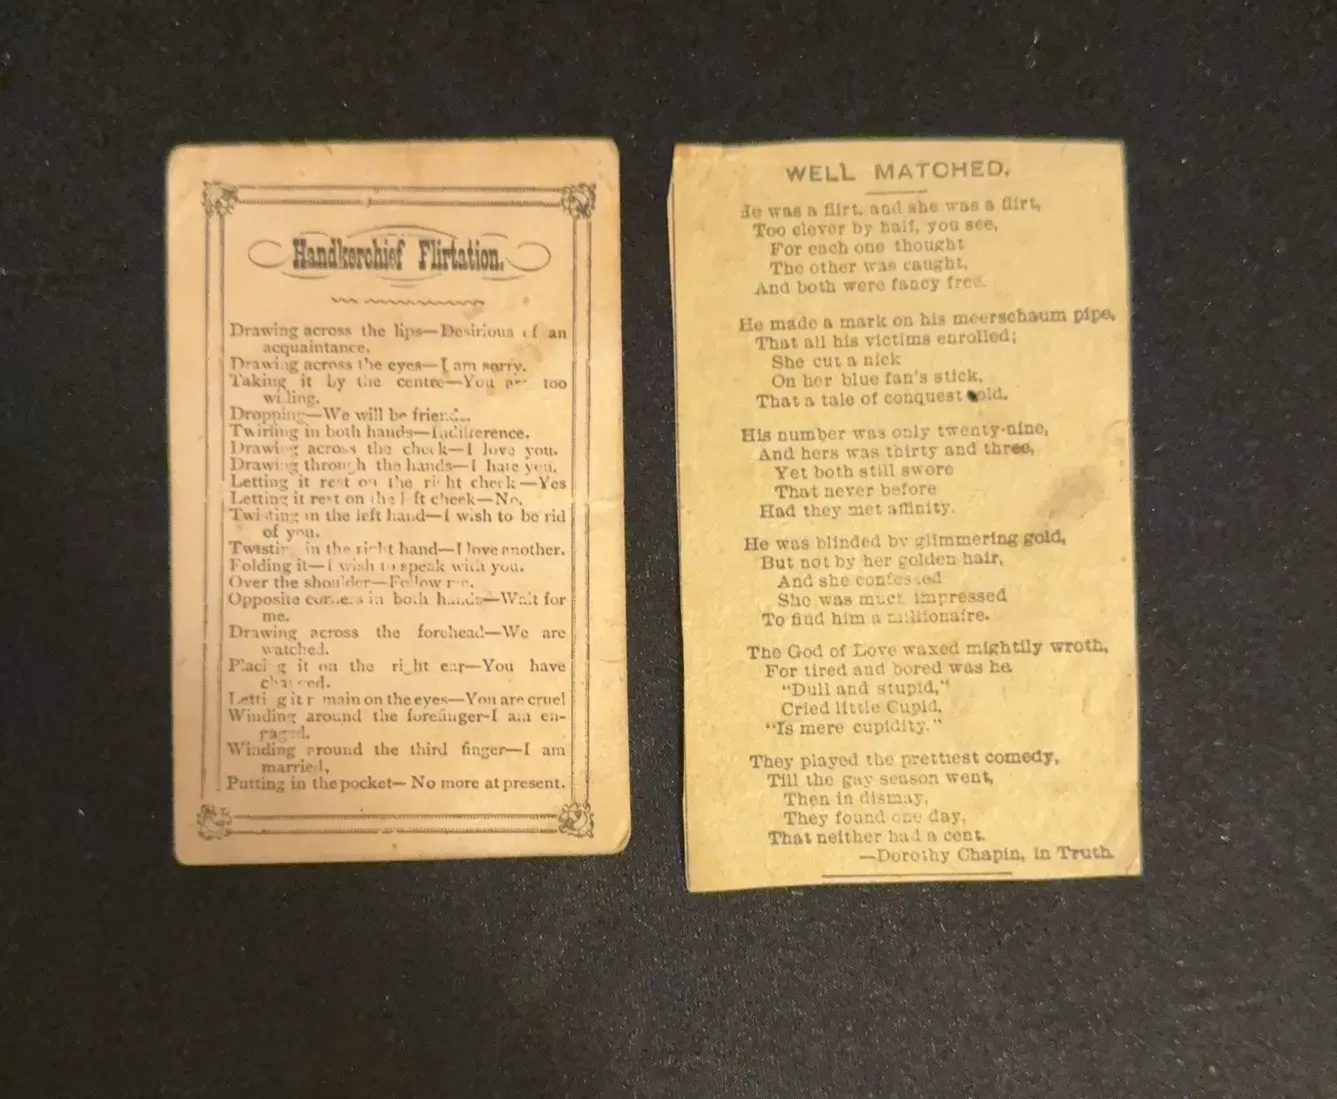 Handkerchief Flirtation.
Drawing across the lips—Desirious of an
acquaintance.
Drawing across the eyes—I am sorry.
Taking it by the centre—You are too
willing.
Dropping—We will be friends.
Twirling in both hands—Indifference.
Drawing across the cheek—I love you.
Drawing through the hands—I hate you.
Letting it rest on the right cheek—Yes
Letting it rest on the left cheek—No.
Twisting in the left hand—I wish to be rid
of you.
Twisting in the right hand—I love another.
Folding it—I wish to speak with you.
Over the shoulder—Follow me.
Opposite corners in both hands—Wait for
me.
Drawing across the forehead—We are
watched.
Placing it on the right ear—You have
changed.
Letting it remain on the eyes—You are cruel
Winding around the forefinger-I am en-
gaged.
Winding around the third finger—I am
married,
Putting in the pocket—No more at present.
WELL MATCHED.
He was a flirt, and she was a flirt,
Too clever by half, you see,
For each one thought
The other was caught,
And both were fancy free.
He made a mark on his meerschaum pipe,
That all his victims enrolled;
She cut a nick
On her blue fan's stick,
That a tale of conquest told.
His number was only twenty-nine,
And hers was thirty and three,
Yet both still swore
That never before
Had they met affinity.
He was blinded by glimmering gold,
But not by her golden hair,
And she confessed
She was much impressed
To find him a millionaire.
The God of Love waxed mightily wroth,
For tired and bored was he
"Dull and stupid,"
Cried little Cupid,
"Is mere cupidity."
They played the prettiest comedy,
Till the gay season went,
Then in dismay,
They found one day,
That neither had a cent.
—Dorothy Chapin, in Truth.